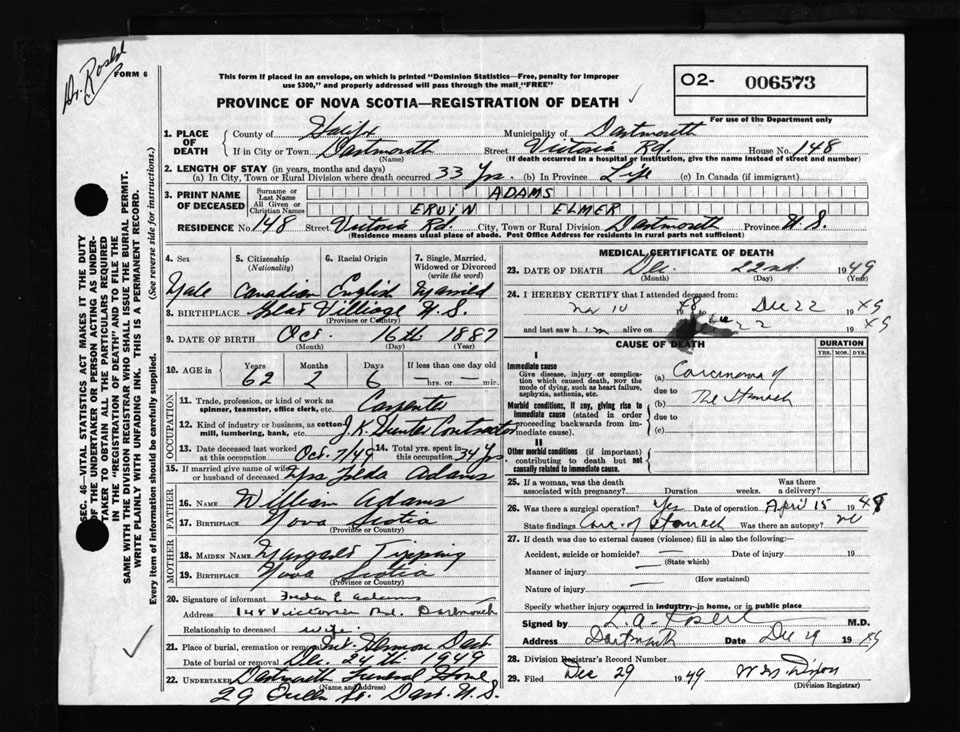 Dr. Rosere
FORM 6
This form if placed in an envelope, on which is printed "Dominion Statistics—Free, penalty for improper
use $300," and properly addressed will pass through the mail "FREE"
PROVINCE OF NOVA SCOTIA—REGISTRATION OF DEATH
O2- 006573
For use of the Department only
SEC. 46—VITAL STATISTICS ACT MAKES IT THE DUTY
OF THE UNDERTAKER OR PERSON ACTING AS UNDER-
TAKER TO OBTAIN ALL THE PARTICULARS REQUIRED
IN THE "REGISTRATION OF DEATH" AND TO FILE THE
SAME WITH THE DIVISION REGISTRAR WHO SHALL ISSUE THE BURIAL PERMIT.
WRITE PLAINLY WITH UNFADING INK. THIS IS A PERMANENT RECORD.
Every item of information should be carefully supplied. (See reverse side for instructions.)
1. PLACE OF DEATH County of Halifx Municipality of Dartmouth
If in City or Town Dartmouth (Name) Street Victoria Rd. House No. 148
(If death occurred in a hospital or institution, give the name instead of street and number)
2. LENGTH OF STAY (in years, months and days)
(a) In City, Town or Rural Division where death occurred 33 Yrs. (b) In Province Life (c) In Canada (if immigrant)
3. PRINT NAME OF DECEASED Surname or Last Name ADAMS
All Given or Christian Names ERVIN ELMER
RESIDENCE No. 148 Street Victoria Rd. City, Town or Rural Division Dartmouth Province N.S.
(Residence means usual place of abode. Post Office Address for residents in rural parts not sufficient)
4. Sex 5. Citizenship (Nationality) 6. Racial Origin 7. Single, Married, Widowed or Divorced (write the word)
Male Canadian English Married
8. BIRTHPLACE Villiage N.S.
(Province or Country)
9. DATE OF BIRTH Oct. 16th 1887
(Month) (Day) (Year)
10. AGE in Years Months Days If less than one day old
62 2 6 hrs. or min.
OCCUPATION
11. Trade, profession, or kind of work as spinner, teamster, office clerk, etc. Carpenter
12. Kind of industry or business, as cotton mill, lumbering, bank, etc. J.K. Hunter Contractor
13. Date deceased last worked at this occupation Oct. 7/49 14. Total yrs. spent in this occupation 34 Yrs
15. If married give name of wife or husband of deceased Mrs Freda Adams
FATHER
16. NAME William Adams
17. BIRTHPLACE Nova Scotia
(Province or Country)
MOTHER
18. MAIDEN NAME Margaret Tipping
19. BIRTHPLACE Nova Scotia
(Province or Country)
20. Signature of informant Freda E Adams
Address 148 Victoria Rd. Dartmouth
Relationship to deceased wife.
21. Place of burial, cremation or removal Mt. Hermon Dart.
Date of burial or removal Dec. 24th 1949
22. UNDERTAKER Dartmouth Funeral Home
(Name and Address)
29 Queen St. Dart. N.S.
MEDICAL CERTIFICATE OF DEATH
23. DATE OF DEATH Dec. 22nd. 1949
(Month) (Day) (Year)
24. I HEREBY CERTIFY that I attended deceased from:
Nov 10 1948 to Dec 22 1949
and last saw him alive on 22 1949
CAUSE OF DEATH DURATION
YRS. MOS. DYS.
I
Immediate cause
Give disease, injury or complication which caused death, NOT the mode of dying, such as heart failure, asphyxia, asthenia, etc.
(a) Carcinoma of
due to The Stomach
Morbid conditions, if any, giving rise to immediate cause (stated in order proceeding backwards from immediate cause).
(b)
due to
(c)
II
Other morbid conditions (if important) contributing to death but not causally related to immediate cause.
25. If a woman, was the death associated with pregnancy? Duration weeks. Was there a delivery?
26. Was there a surgical operation? Yes Date of operation April 15 1948
State findings Carc. of Stomach Was there an autopsy? no
27. If death was due to external causes (violence) fill in also the following:
Accident, suicide or homicide? — Date of injury 19
(State which)
Manner of injury —
(How sustained)
Nature of injury —
Specify whether injury occurred in industry, in home, or in public place
Signed by M.D.
Address Dartmouth Date Dec 29 1949
28. Division Registrar's Record Number
29. Filed Dec 29 1949 W M Dixon
(Division Registrar)